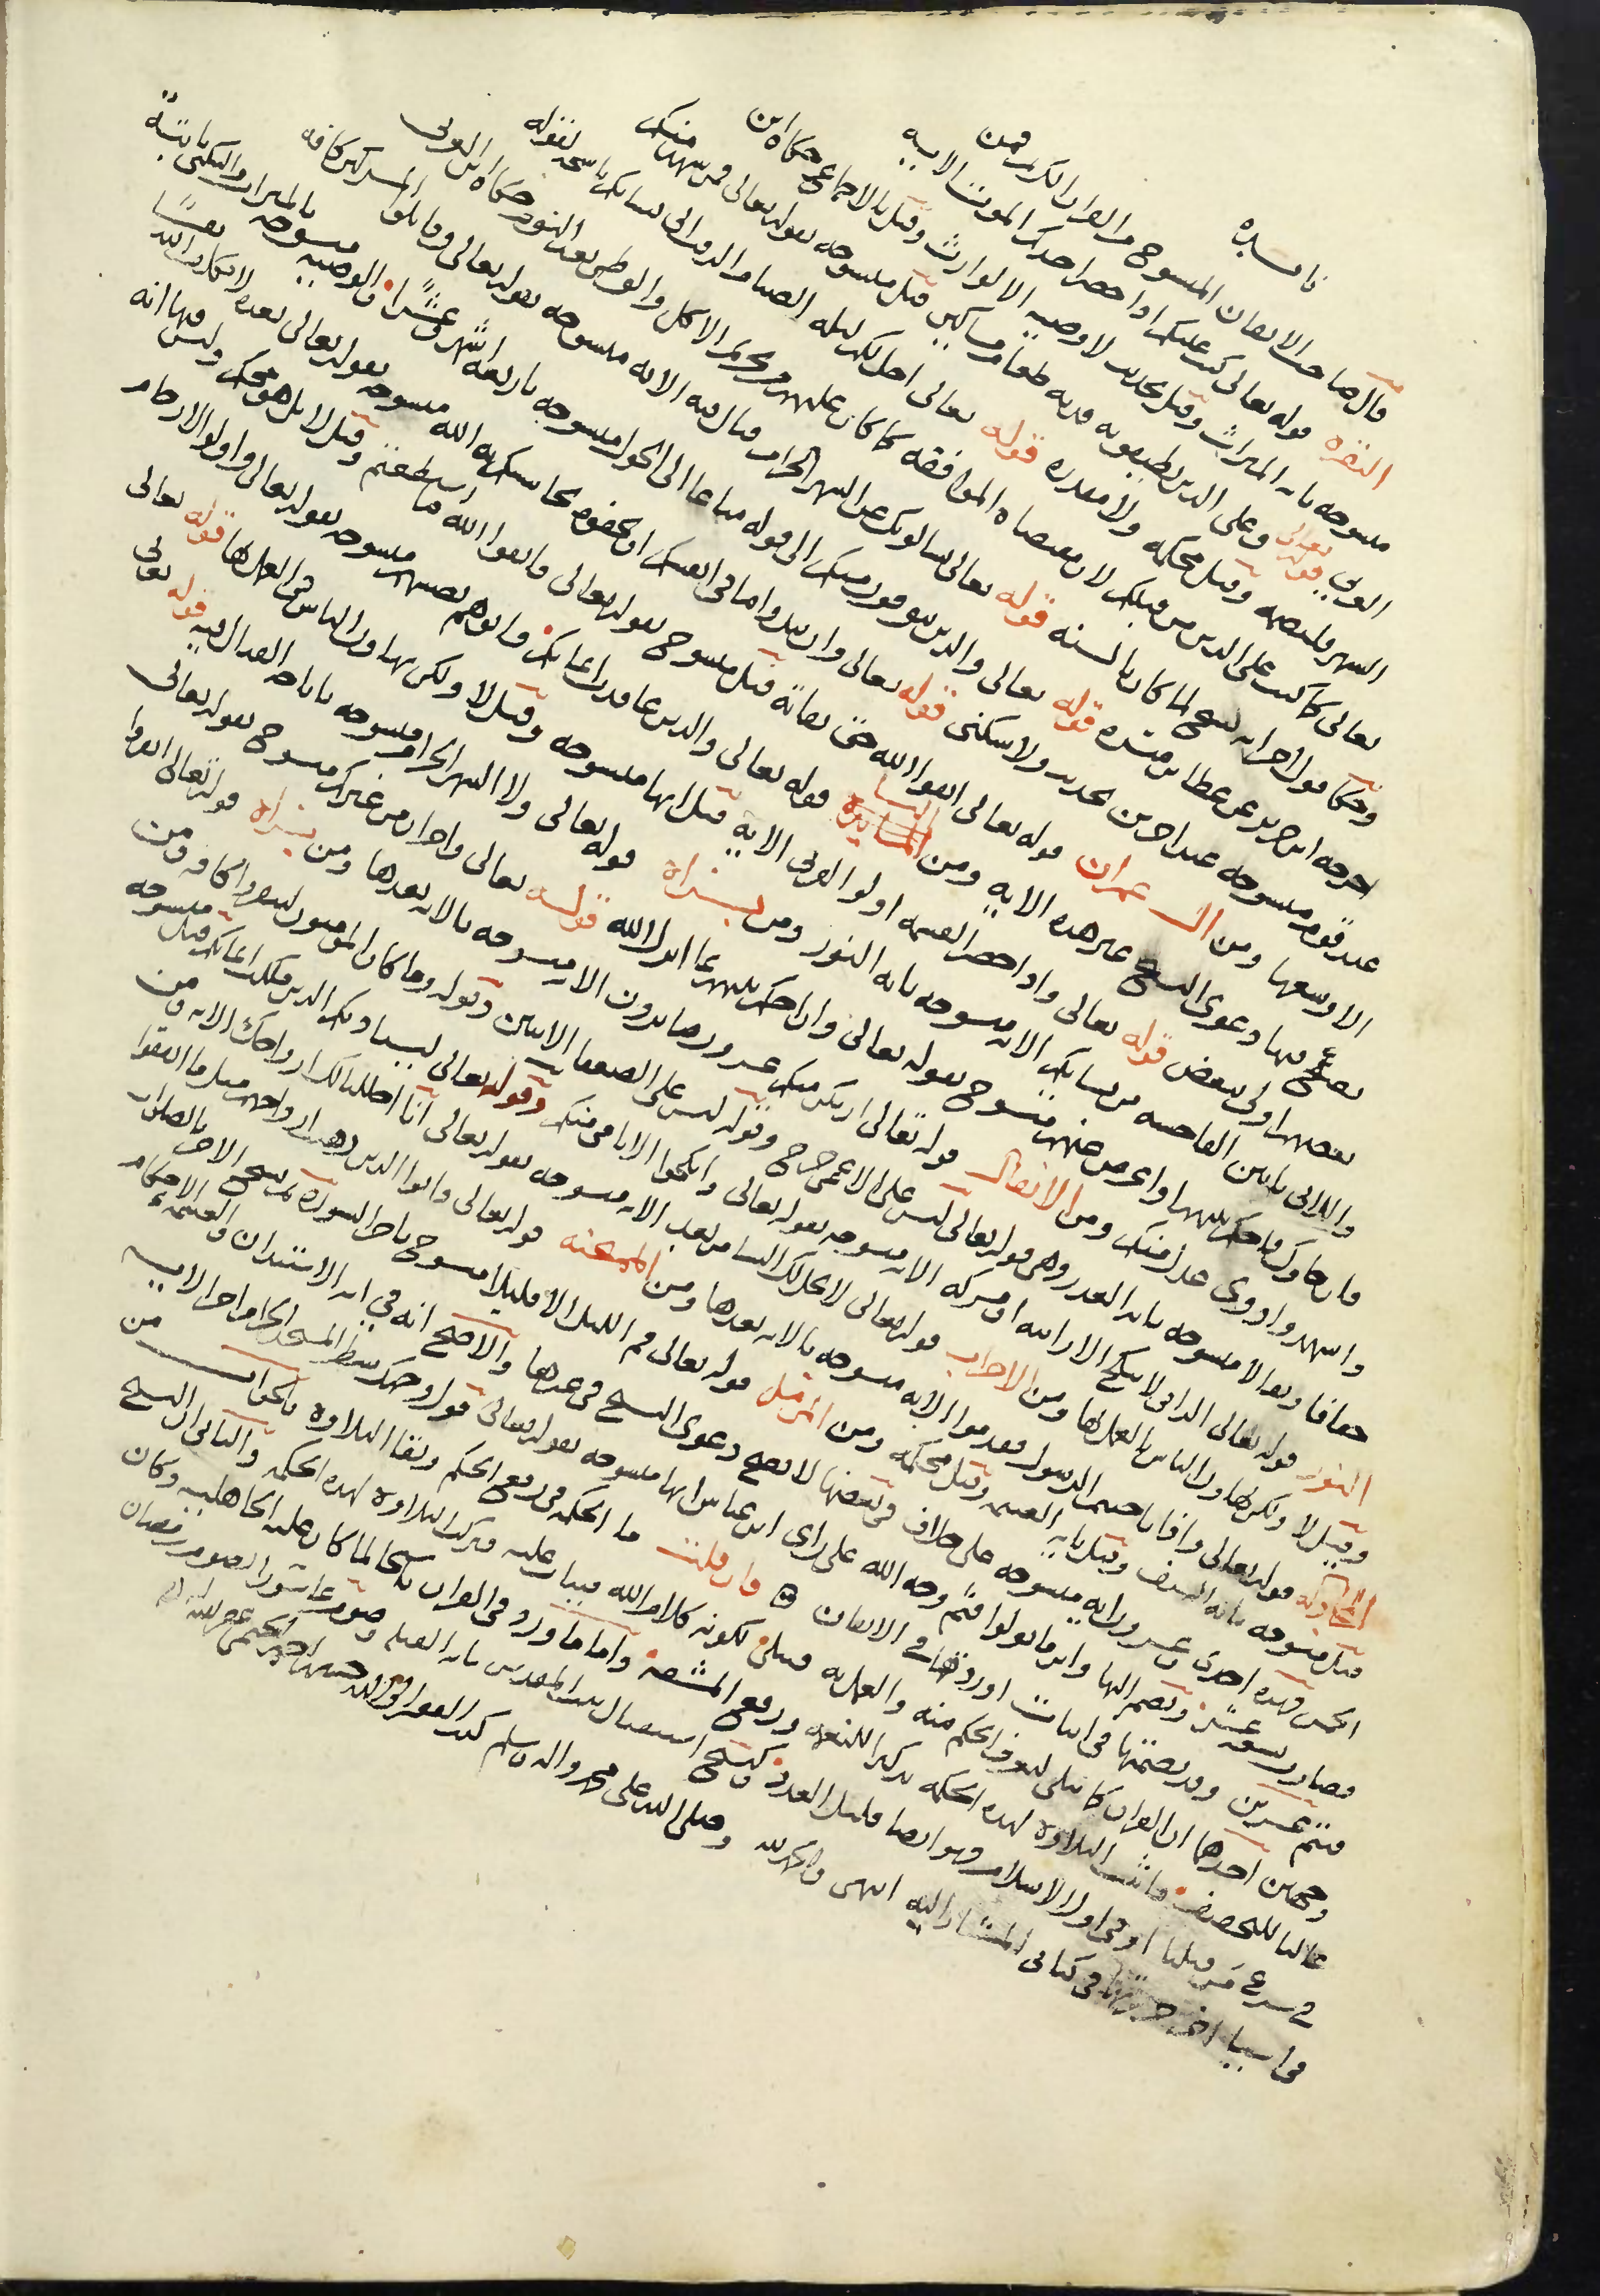 فائدة
قال صاحب الاتقان المنسوخ من القران الكريم فمن
البقرة قوله تعالى كتب عليكم اذا حضر احدكم الموت الاية
منسوخة باية الميراث وقيل بحديث لا وصية الا لوارث وقيل بالاجماع حكاه ابن
العربي قوله تعالى وعلى الذين يطيقونه فدية طعام مساكين قيل منسوخة بقوله تعالى فمن شهد منكم
الشهر فليصمه وقيل محكمة ولا مقدرة قوله تعالى احل لكم ليلة الصيام الرفث الى نسائكم ناسخة لقوله
تعالى كما كتب على الذين من قبلكم لان مقتضاه الموافقة كما كان عليهم من تحريم الاكل والوطى بعد النوم حكاه ابن العربي
وحكا قولا اخر انه نسخ لما كان بالسنة قوله تعالى يسالونك عن الشهر الحرام قتال فيه الاية منسوخة بقوله تعالى وقاتلوا المشركين كافة
اخرجه ابن جرير عن عطا بن ميسرة قوله تعالى والذين يتوفون منكم الى قوله متاعا الى الحول منسوخة باربعة اشهر وعشرا والوصية منسوخة بالميراث والسكنى ثابتة
عند قوم منسوخة عند اخرين بحديث ولا سكنى قوله تعالى وان تبدوا ما في انفسكم او تخفوه يحاسبكم به الله منسوخة بقوله تعالى بعده لا يكلف الله نفسا
الا وسعها ومن ال عمران قوله تعالى اتقوا الله حق تقاته قيل منسوخ بقوله تعالى فاتقوا الله ما استطعتم وقيل لا بل هو محكم وليس فيها اية
يصح فيها دعوى النسخ غير هذه الاية ومن النسا قوله تعالى والذين عاقدت ايمانكم فاتوهم نصيبهم منسوخة بقوله تعالى واولوا الارحام
بعضهم اولى ببعض قوله تعالى واذا حضر القسمة اولوا القربى الاية قيل انها منسوخة وقيل لا ولكن تهاون الناس في العمل بها قوله تعالى
واللاتي ياتين الفاحشة من نسائكم الاية منسوخة باية النور ومن براة قوله تعالى ولا الشهر الحرام منسوخة باباحة القتال فيه قوله تعالى
فان جاوك فاحكم بينهم او اعرض عنهم منسوخ بقوله تعالى وان احكم بينهم بما انزل الله قوله تعالى واخران من غيركم منسوخ بقوله تعالى
واشهدوا ذوى عدل منكم ومن الانفال قوله تعالى ان يكن منكم عشرون صابرون الاية منسوخة بالاية بعدها ومن براة قوله تعالى انفروا
خفافا وثقالا منسوخة باية العذر وهي قوله تعالى ليس على الاعمى حرج وقوله ليس على الضعفا الايتين وبقوله وما كان المؤمنون لينفروا كافة ومن
النور قوله تعالى الزاني لا ينكح الا زانية او مشركة الاية منسوخة بقوله تعالى وانكحوا الايامى منكم وقوله تعالى ليستاذنكم الذين ملكت ايمانكم قيل منسوخة
وقيل لا ولكن تهاون الناس بالعمل بها ومن الاحزاب قوله تعالى لا يحل لك النسا من بعد الاية منسوخة بقوله تعالى انا احللنا لك ازواجك الاية ومن
المجادلة قوله تعالى واذا ناجيتم الرسول فقدموا الاية منسوخة بالاية بعدها ومن الممتحنة قوله تعالى واتوا الذين ذهبت ازواجهم مثل ما انفقوا
قيل منسوخة باية السيف وقيل باية الغنيمة وقيل محكمة ومن المزمل قوله تعالى قم الليل الا قليلا منسوخ باخر السورة ثم نسخ الاخر بالصلوات
الخمس فهذه احدى وعشرون اية منسوخة على خلاف في بعضها لا تصح دعوى النسخ في غيرها والاصح انه في اية الاستئذان والقسمة الاحكام
فصارت تسعة عشر وتضم اليها واين ما تولوا فثم وجه الله على راى ابن عباس انها منسوخة بقوله تعالى فول وجهك شطر المسجد الحرام اخر الاية
فتتم عشرين وقد نظمتها في ابيات اوردتها في الاتقان فان قلت ما الحكمة في رفع الحكم وبقا التلاوة فالجواب من
وجهين احدهما ان القران كما يتلى ليعرف الحكم منه والعمل به فيتلى لكونه كلام الله فيثاب عليه فتركت التلاوة لهذه الحكمة والثاني ان النسخ
غالبا للتخفيف فابقيت التلاوة لهذه الحكمة تذكيرا للنعمة ورفع المشقة واما ما ورد في القران ناسخا لما كان عليه الجاهلية وكان
في شرع من قبلنا او في اول الاسلام فهو ايضا قليل العدد كنسخ استقبال بيت المقدس باية القبلة وصوم عاشورا بصوم رمضان
في اشيا اخر حررتها في كتابي المشار اليه انتهى والحمد لله وصلى الله على محمد واله وسلم كتبه الفقير